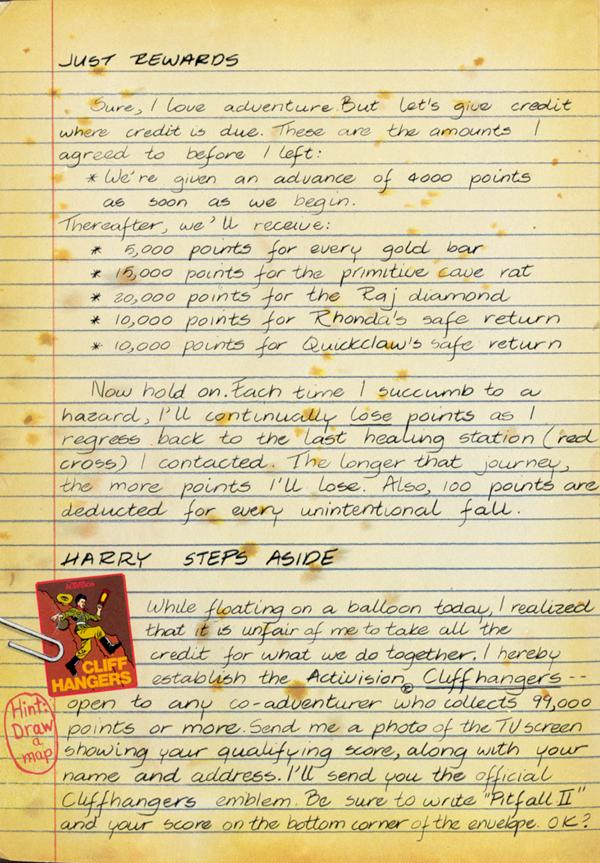 JUST REWARDS
Sure, I love adventure. But let's give credit
where credit is due. These are the amounts I
agreed to before I left:
* We're given an advance of 4000 points
as soon as we begin.
Thereafter, we'll receive:
* 5,000 points for every gold bar
* 15,000 points for the primitive cave rat
* 20,000 points for the Raj diamond
* 10,000 points for Rhonda's safe return
* 10,000 points for Quickclaw's safe return
Now hold on. Each time I succumb to a
hazard, I'll continually lose points as I
regress back to the last healing station (red
cross) I contacted. The longer that journey,
the more points I'll lose. Also, 100 points are
deducted for every unintentional fall.
HARRY STEPS ASIDE
ACTIVISION
CLIFF
HANGERS
While floating on a balloon today, I realized
that it is unfair of me to take all the
credit for what we do together. I hereby
establish the Activision® Cliffhangers --
open to any co-adventurer who collects 99,000
points or more. Send me a photo of the TV screen
showing your qualifying score, along with your
name and address. I'll send you the official
Cliffhangers emblem. Be sure to write "Pitfall II"
and your score on the bottom corner of the envelope. OK?
Hint:
Draw
a
map